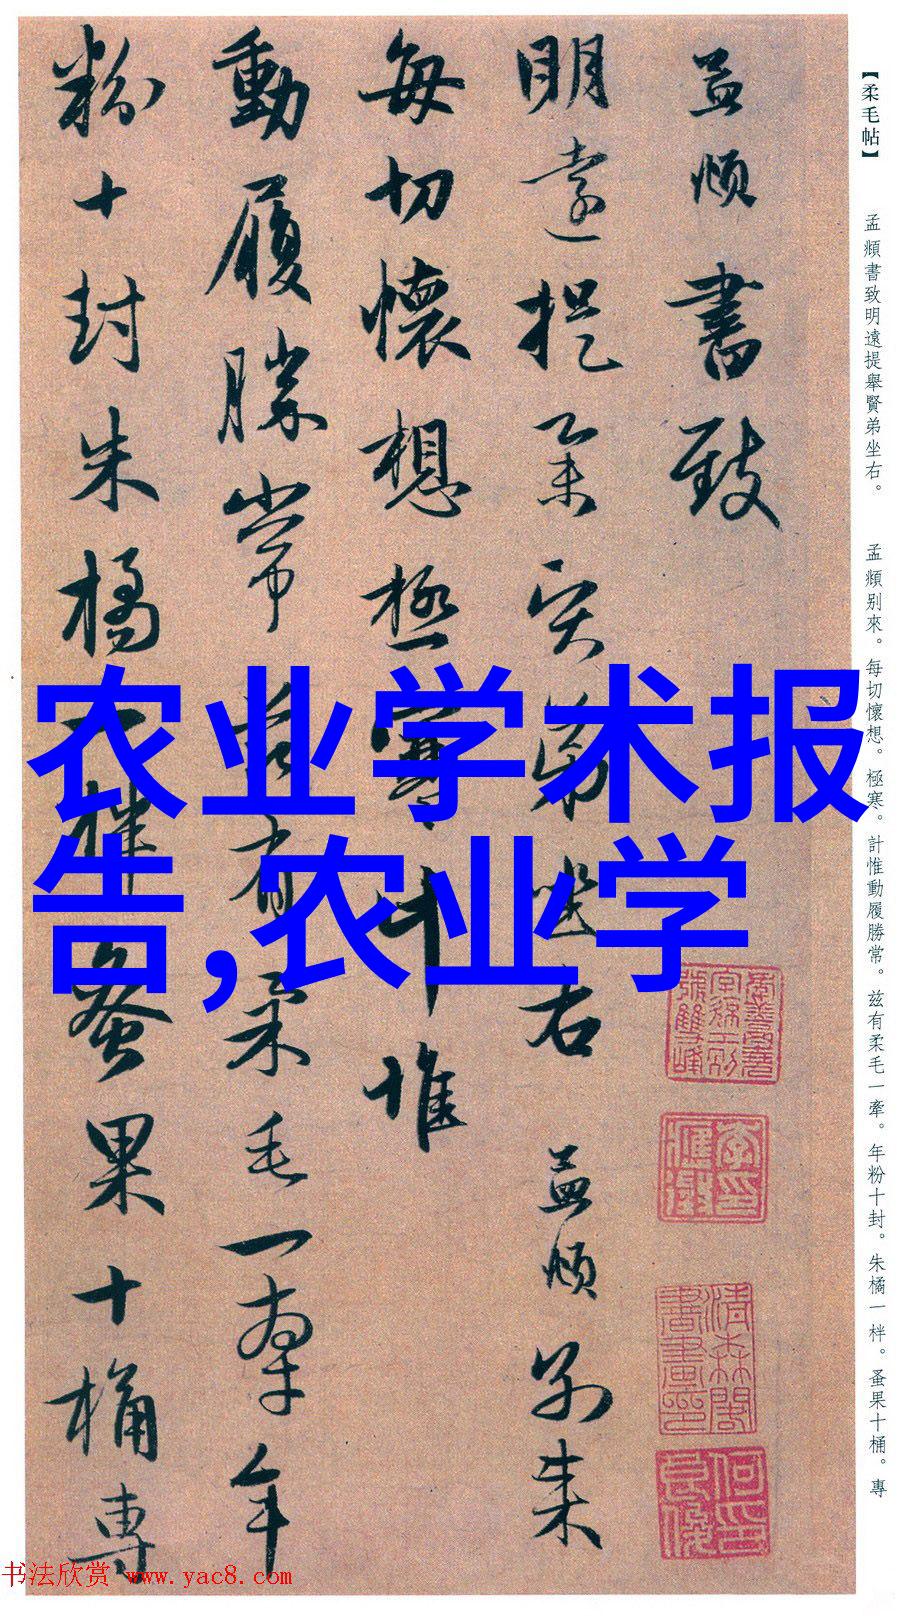 【柔毛帖】
孟頫書致明遠提舉賢弟坐右。
孟頫别來。每切懷想。極寒。計惟動履勝常。兹有柔毛一牽。年粉十封。朱橘一柈。蚤果十桶。專
孟頫書致
明遠提舉賢弟坐右 孟頫别來
每切懷想極寒計惟
動履勝常兹有柔毛一牽年
粉十封朱橘一柈蚤果十桶專
农业学术报
告,农业学
书法欣赏 www.yac8.com